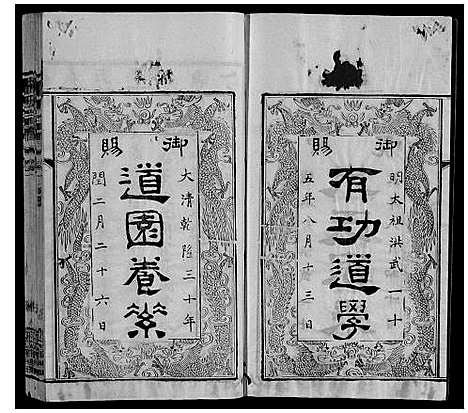 御賜
明太祖洪武二十
有功道學
五年八月十三日
御賜
大清乾隆三十年
道園養筞
閏二月二十六日